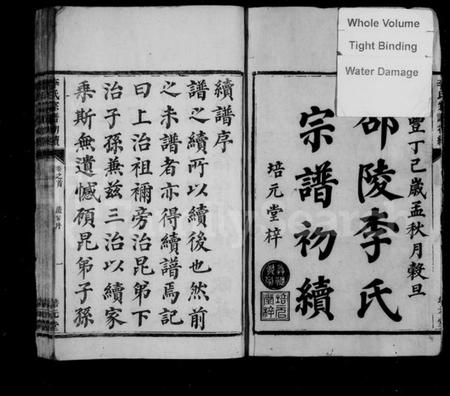 Whole Volume
Tight Binding
Water Damage
豐丁巳歲孟秋月穀旦
邵陵李氏
宗譜初續
培元堂梓
續譜序
譜之續所以續後也然前
之未譜者亦得續譜焉記
曰上治祖禰旁治昆弟下
治子孫兼茲三治以續家
乘斯無遺憾顧昆弟子孫